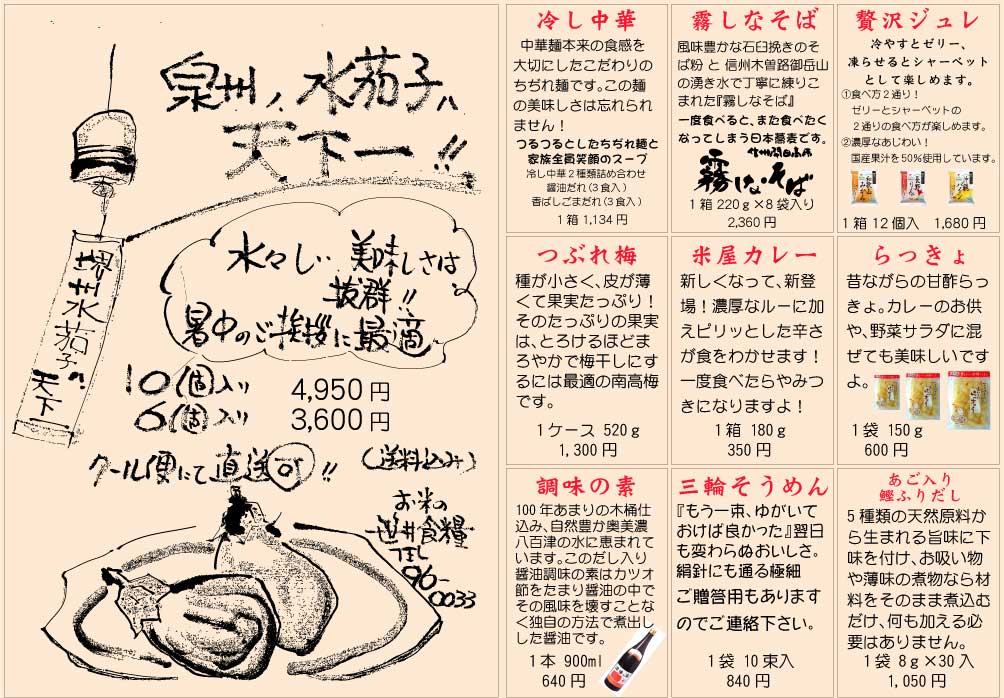 泉州ノ水茄子ハ
天下一!!
堺州水茄子ハ天下一
水々しい美味しさは
抜群!!
暑中のご挨拶に最適
10個入り 4,950円
6個入り 3,600円
クール便にて直送可!! (送料込み)
お米の
笹井食糧
TEL
96-
0033
冷し中華
中華麺本来の食感を
大切にしたこだわりの
ちぢれ麺です。この麺
の美味しさは忘れられ
ません!
つるつるとしたちぢれ麺と
家族全員笑顔のスープ
冷し中華2種類詰め合わせ
醤油だれ(3食入)
香ばしごまだれ(3食入)
1箱 1,134円
霧しなそば
風味豊かな石臼挽きのそ
ば粉 と 信州木曽路御岳山
の湧き水で丁寧に練りこ
まれた『霧しなそば』
一度食べると、また食べたく
なってしまう日本蕎麦です。
信州開田高原
霧しなそば
1箱 220g×8袋入り
2,360円
贅沢ジュレ
冷やすとゼリー、
凍らせるとシャーベット
として楽しめます。
①食べ方2通り!
ゼリーとシャーベットの
2通りの食べ方が楽しめます。
②濃厚なあじわい!
国産果汁を50%使用しています。
1箱 12個入 1,680円
つぶれ梅
種が小さく、皮が薄
くて果実たっぷり!
そのたっぷりの果実
は、とろけるほどま
ろやかで梅干しにす
るには最適の南高梅
です。
1ケース 520g
1,300円
米屋カレー
新しくなって、新登
場!濃厚なルーに加
えピリッとした辛さ
が食をわかせます!
一度食べたらやみつ
きになりますよ!
1箱 180g
350円
らっきょ
昔ながらの甘酢らっ
きょ。カレーのお供
や、野菜サラダに混
ぜても美味しいです
よ。
1袋 150g
600円
調味の素
100年あまりの木桶仕
込み、自然豊か奥美濃
八百津の水に恵まれて
います。このだし入り
醤油調味の素はカツオ
節をたまり醤油の中で
その風味を壊すことな
く独自の方法で煮出し
した醤油です。
1本 900ml
640円
三輪そうめん
『もう一束、ゆがいて
おけば良かった』翌日
も変わらぬおいしさ。
絹針にも通る極細
ご贈答用もあります
のでご連絡下さい。
1袋 10束入
840円
あご入り
鰹ふりだし
5種類の天然原料か
ら生まれる旨味に下
味を付け、お吸い物
や薄味の煮物なら材
料をそのまま煮込む
だけ、何も加える必
要はありません。
1袋 8g×30入
1,050円